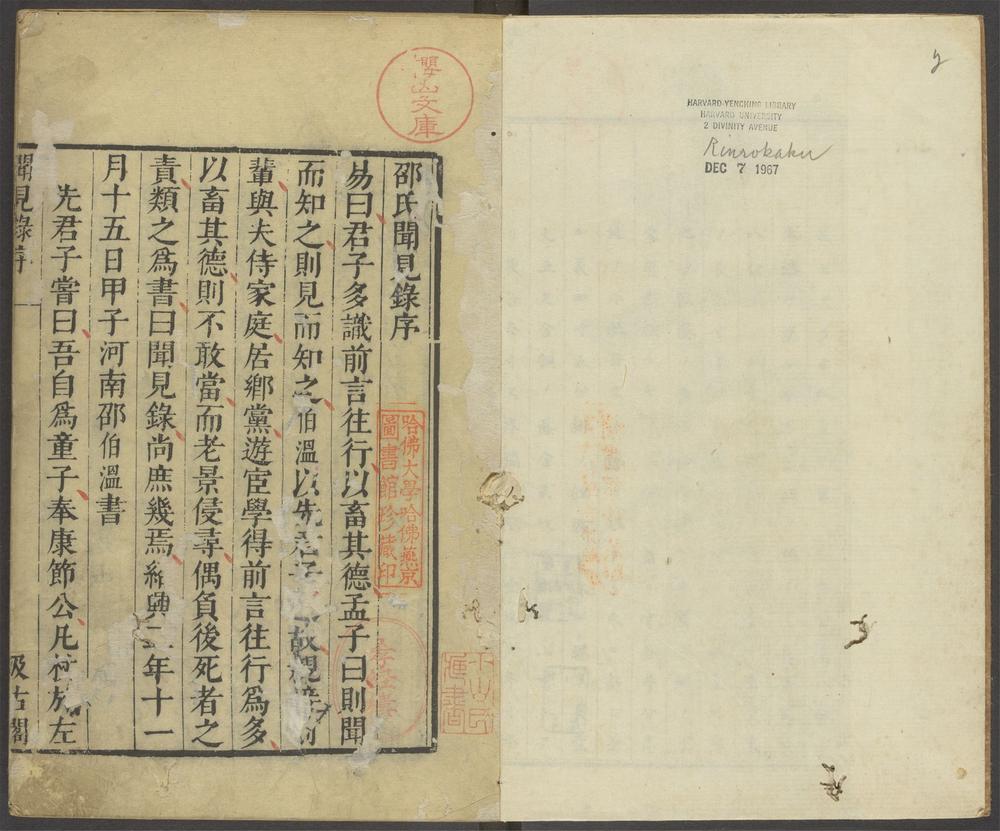 2
HARVARD-YENCHING LIBRARY
HARVARD UNIVERSITY
2 DIVINITY AVENUE
Rinrokaku
DEC 7 1967
文庫
哈佛大學哈佛燕京
圖書館珍藏印
邵氏聞見錄序
易曰君子多識前言往行以畜其德孟子曰則聞
而知之則見而知之伯溫以先君子之故親接前
輩與夫侍家庭居鄉黨遊宦學得前言往行爲多
以畜其德則不敢當而老景侵尋偶負後死者之
責類之爲書曰聞見錄尚庶幾焉紹興二年十一
月十五日甲子河南邵伯溫書
先君子嘗曰吾自爲童子奉康節公凡杖於左
聞見錄序 一 汲古閣